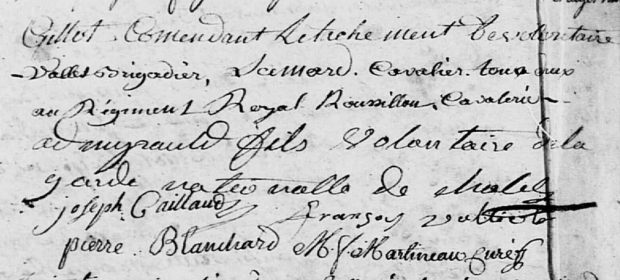 Gillot Comendant détachement de volontaire
Vallet Brigadier, Simard. Cavalier. tous deux
au Régiment Royal Roussillon, Cavalerie
admyrauld fils Volontaire de la
garde nationalle de
joseph Gaillaud françois
pierre Blanchard M. J. Martineau curé